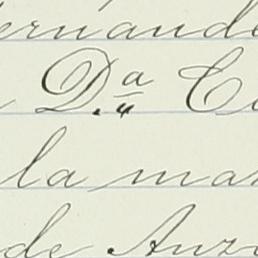 ernande
D.ª C
la ma
de Anz